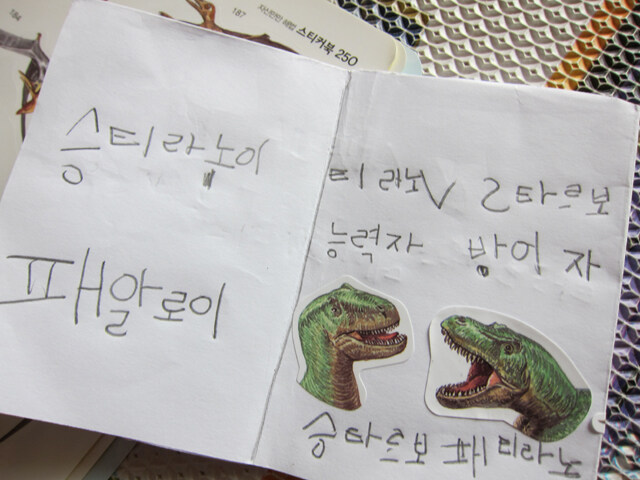 184
187
스티커북 250
승티라노이
패알로이
티라노VS타르보
능력자 방어자
승타르보 패티라노